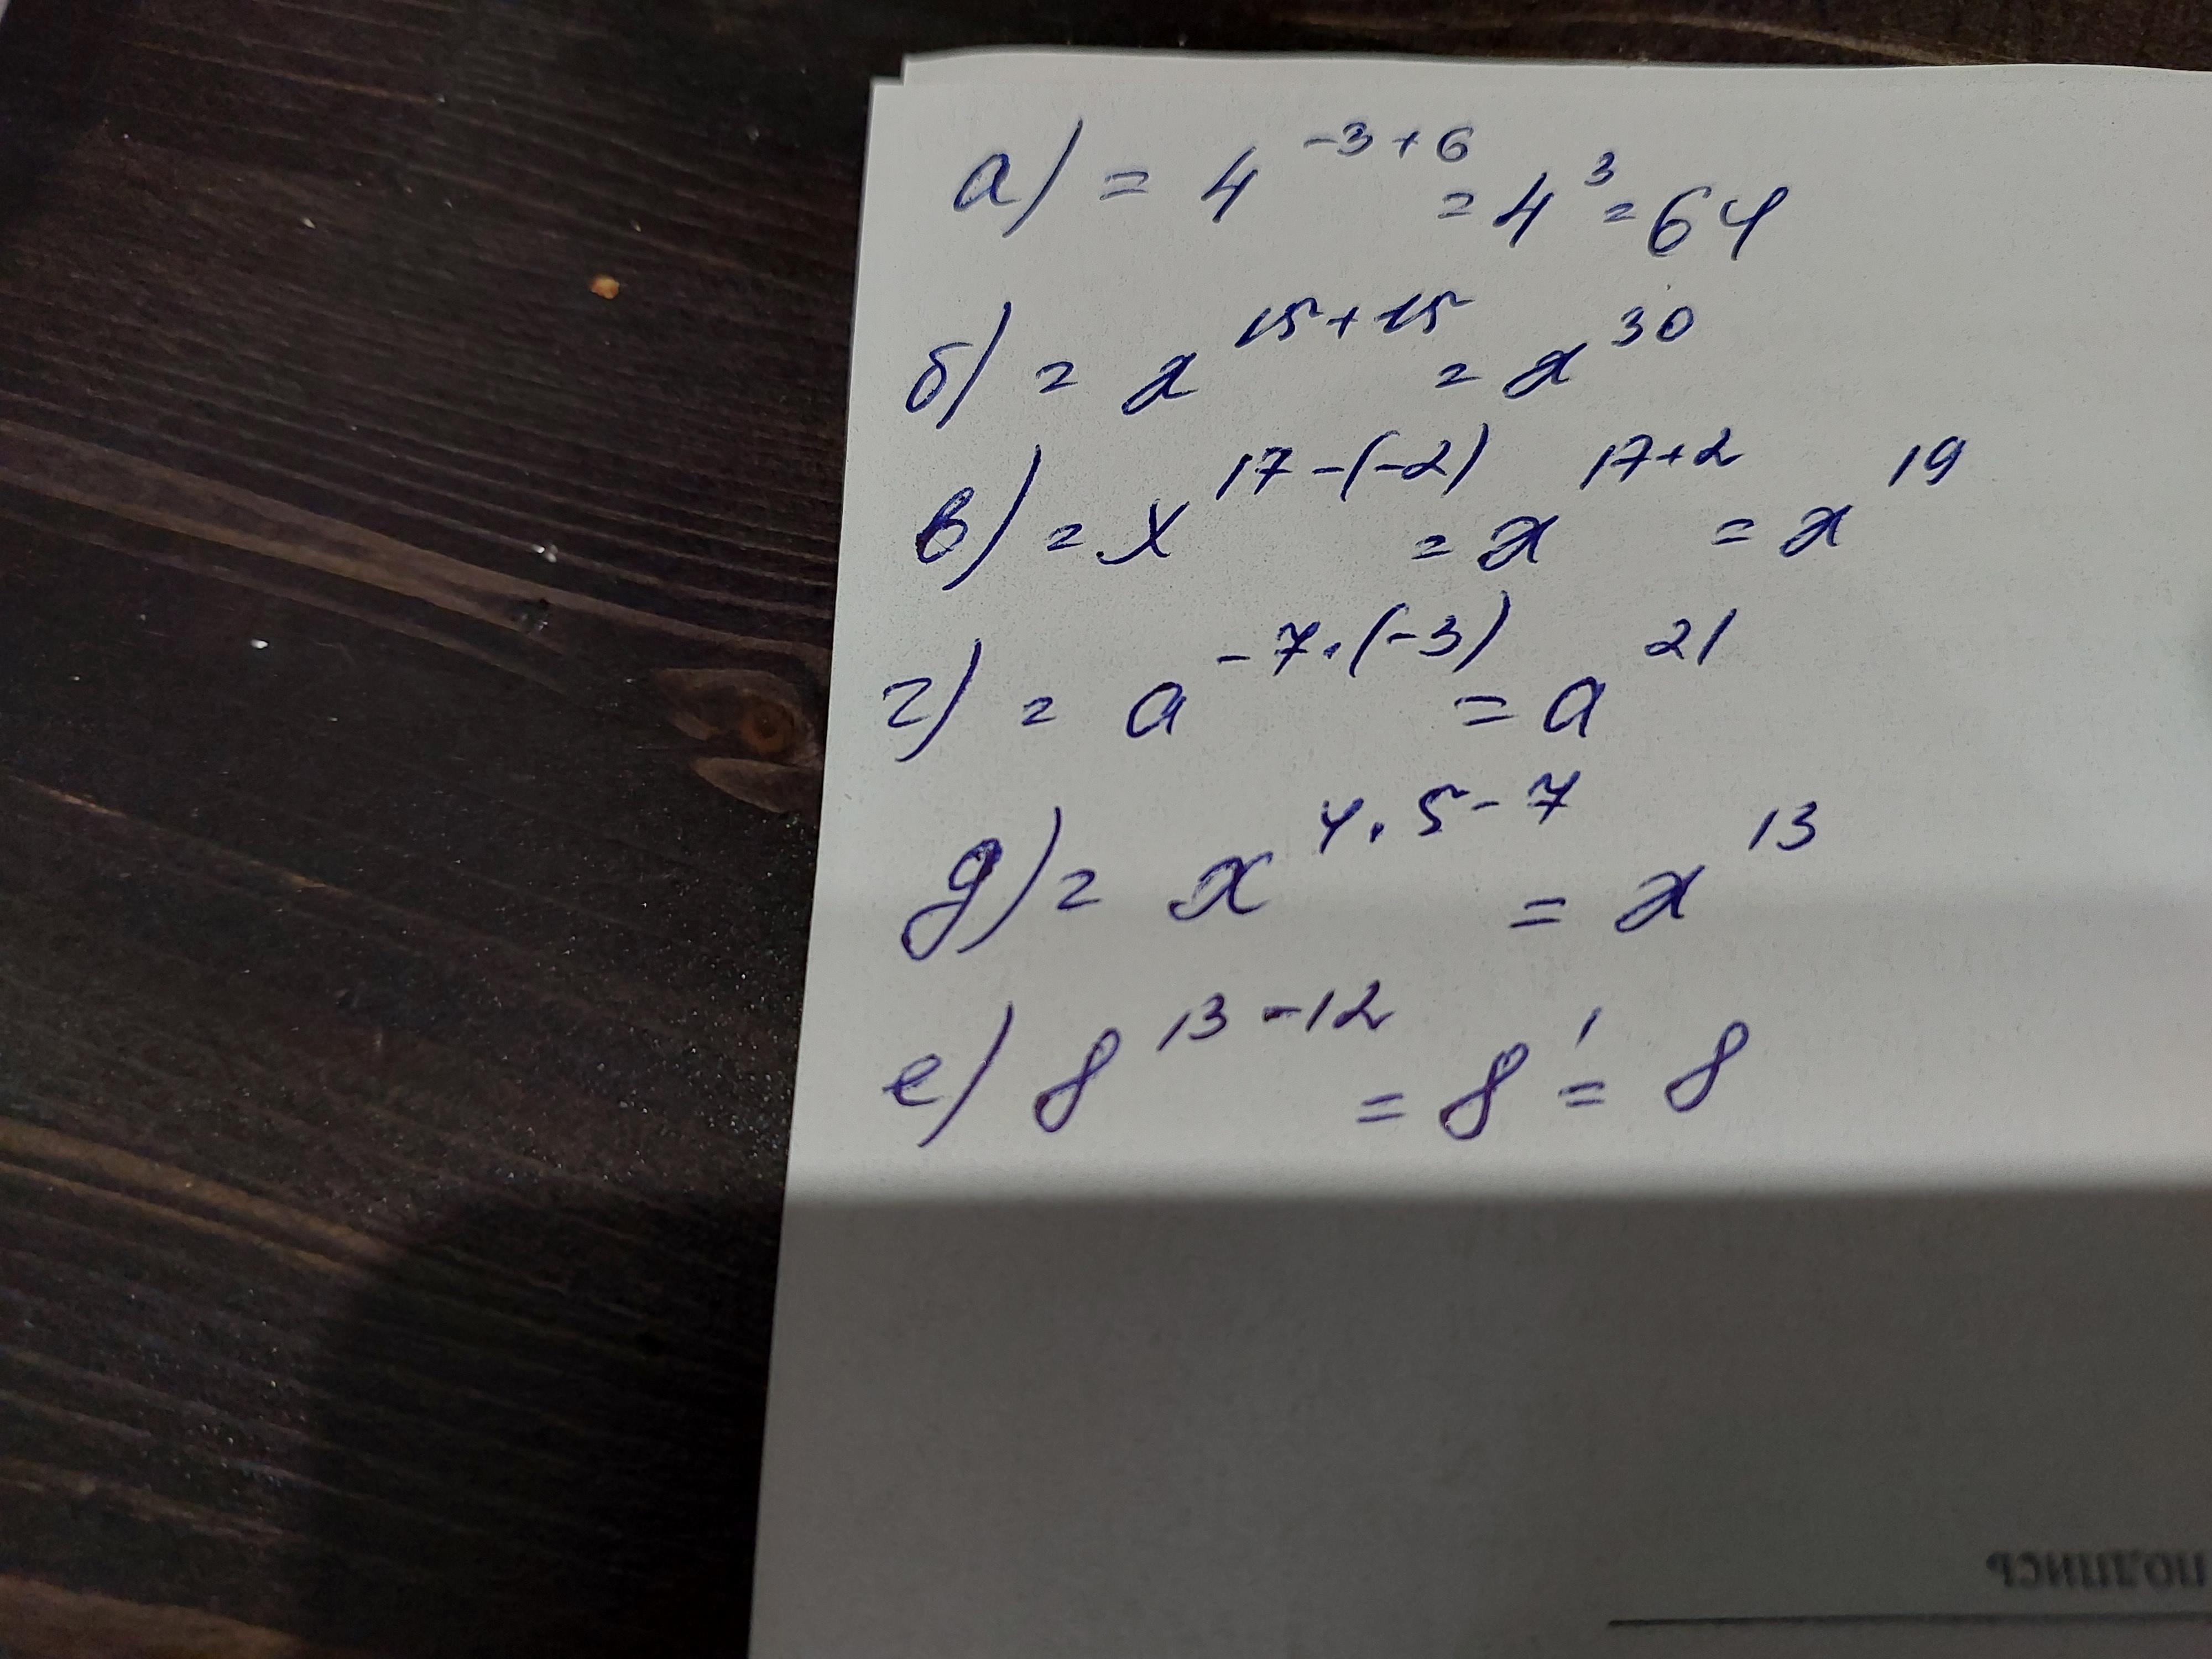 а) = 4^{-3+6} = 4^3 = 64
б) = x^{15+15} = x^{30}
в) = x^{17-(-2)} = x^{17+2} = x^{19}
г) = a^{-7·(-3)} = a^{21}
д) = x^{4·5-7} = x^{13}
е) 8^{13-12} = 8^1 = 8
подпись